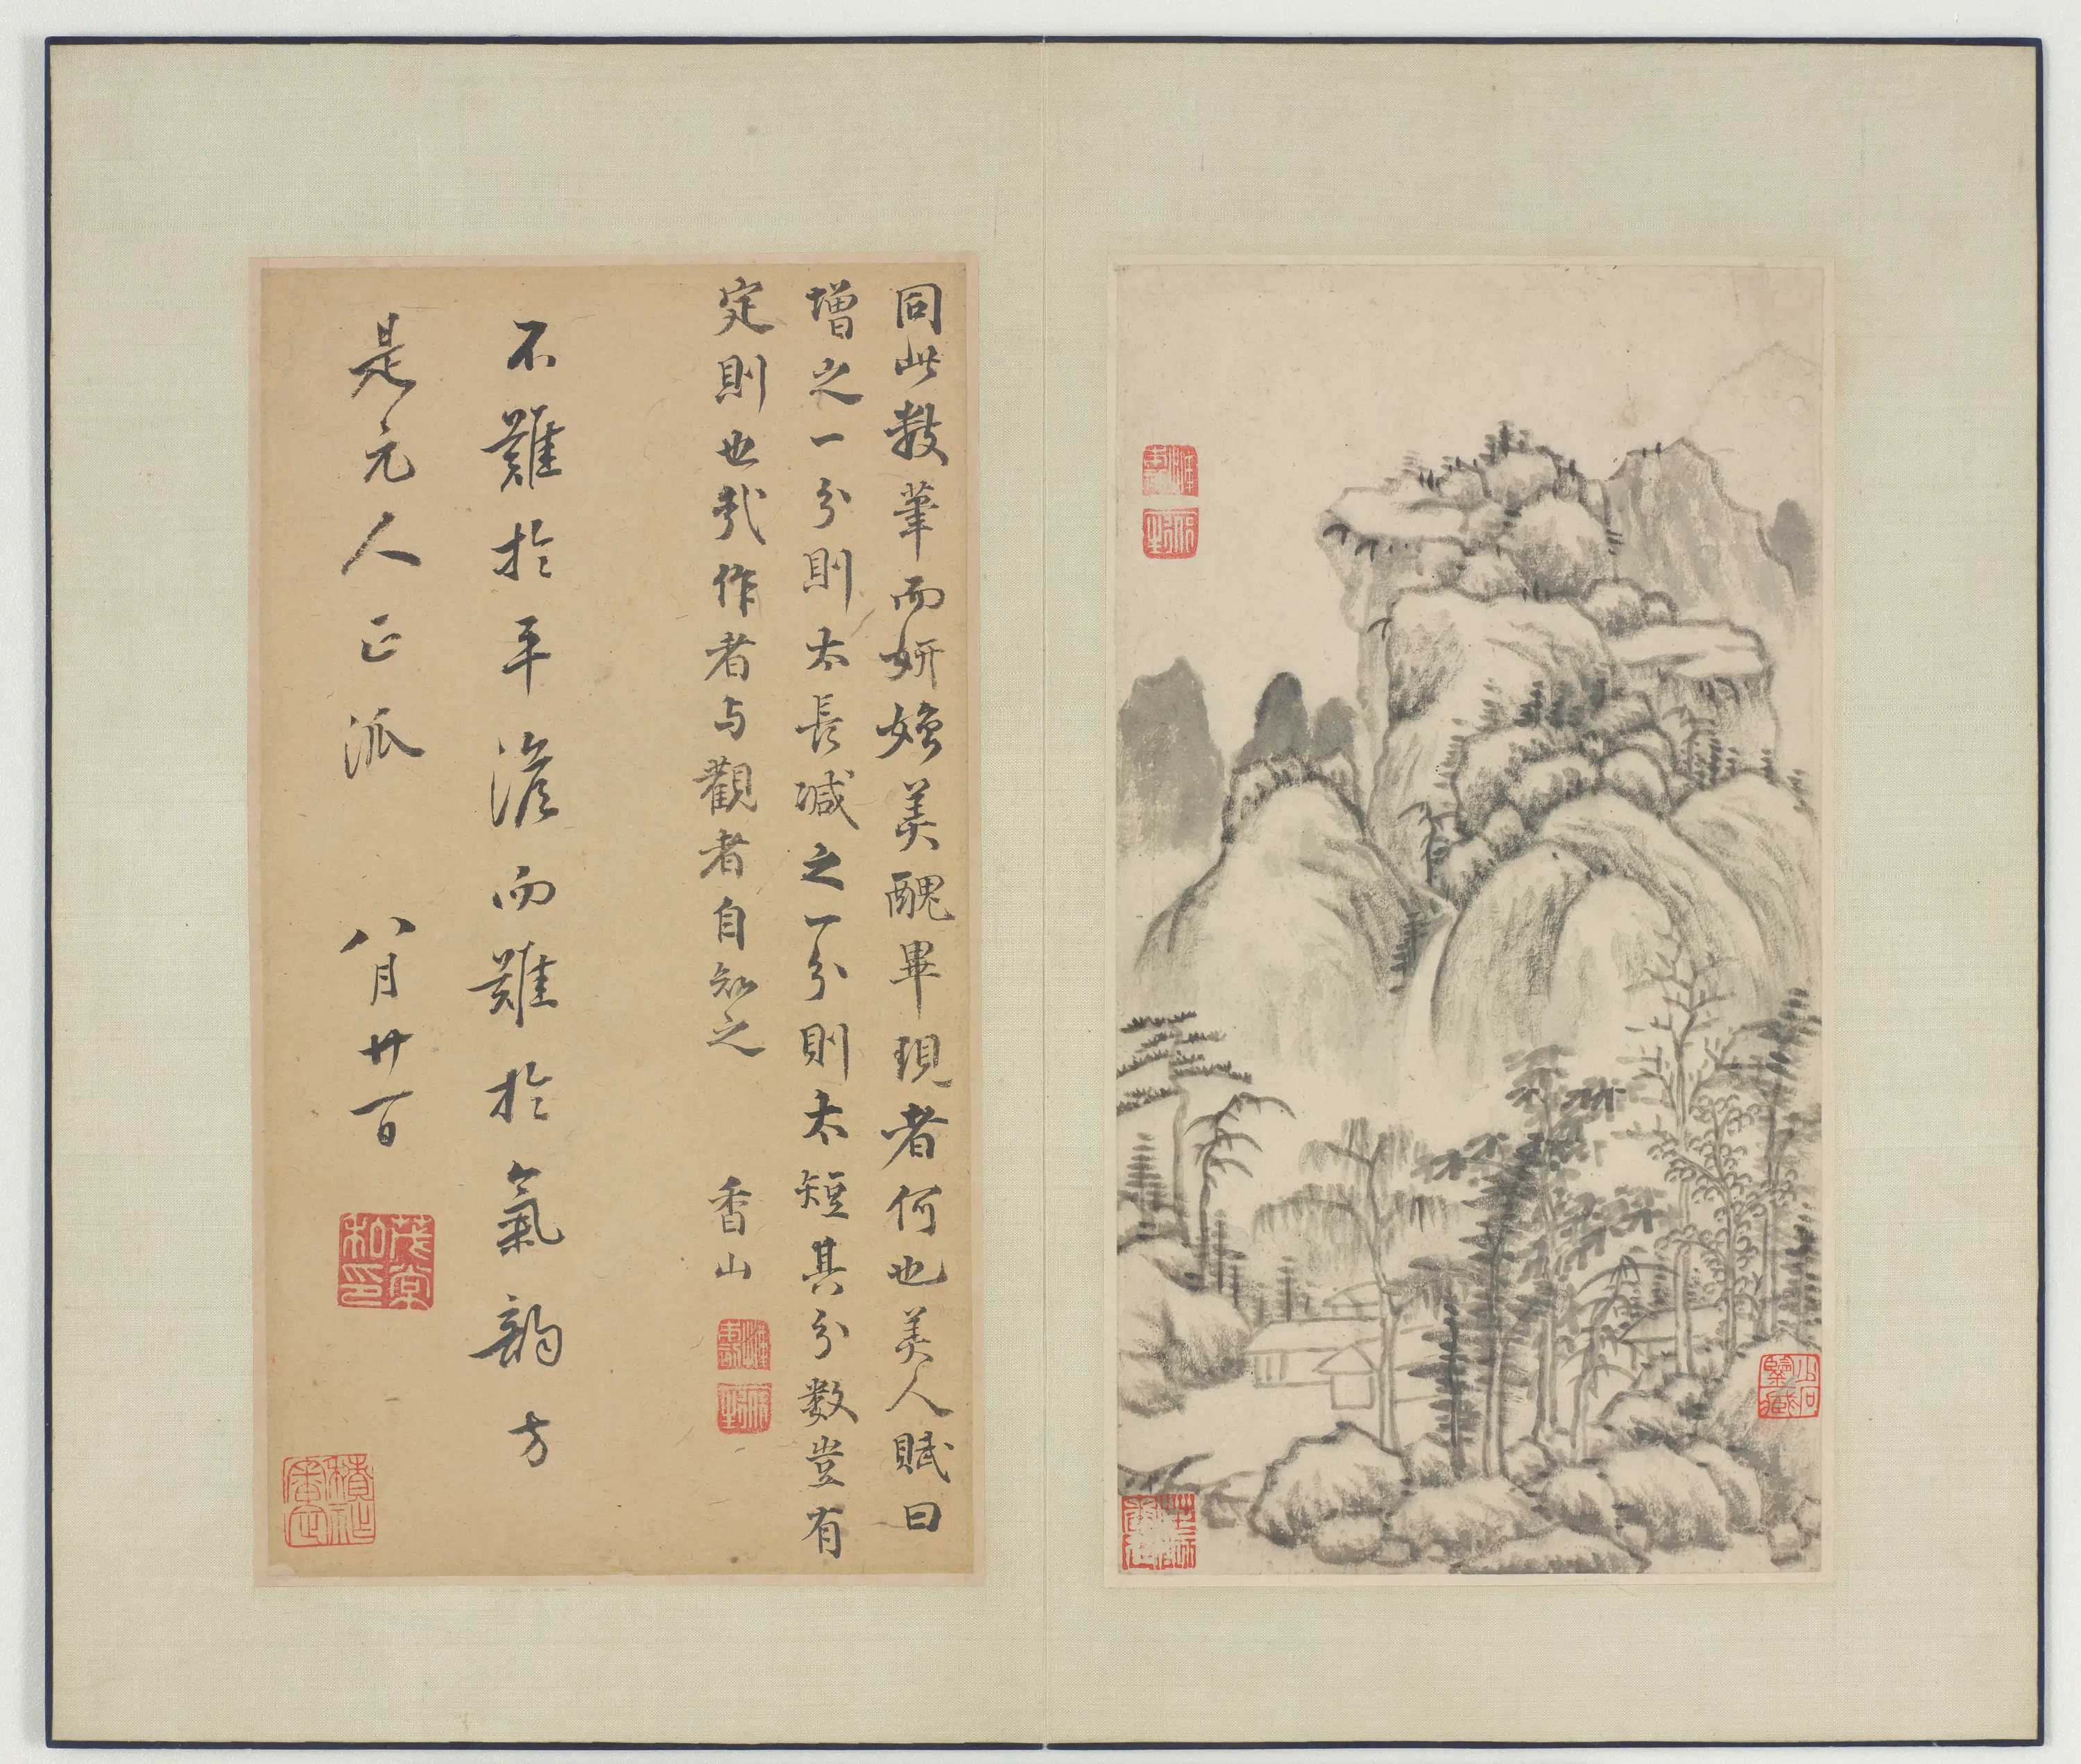 同此數筆而妍媸美醜畢現者何也美人賦曰
增之一分則太長減之一分則太短其分數豈有
定則也哉作者与觀者自知之 香山
不難於平澹而難於氣韵方
是元人正派 八月廿一日